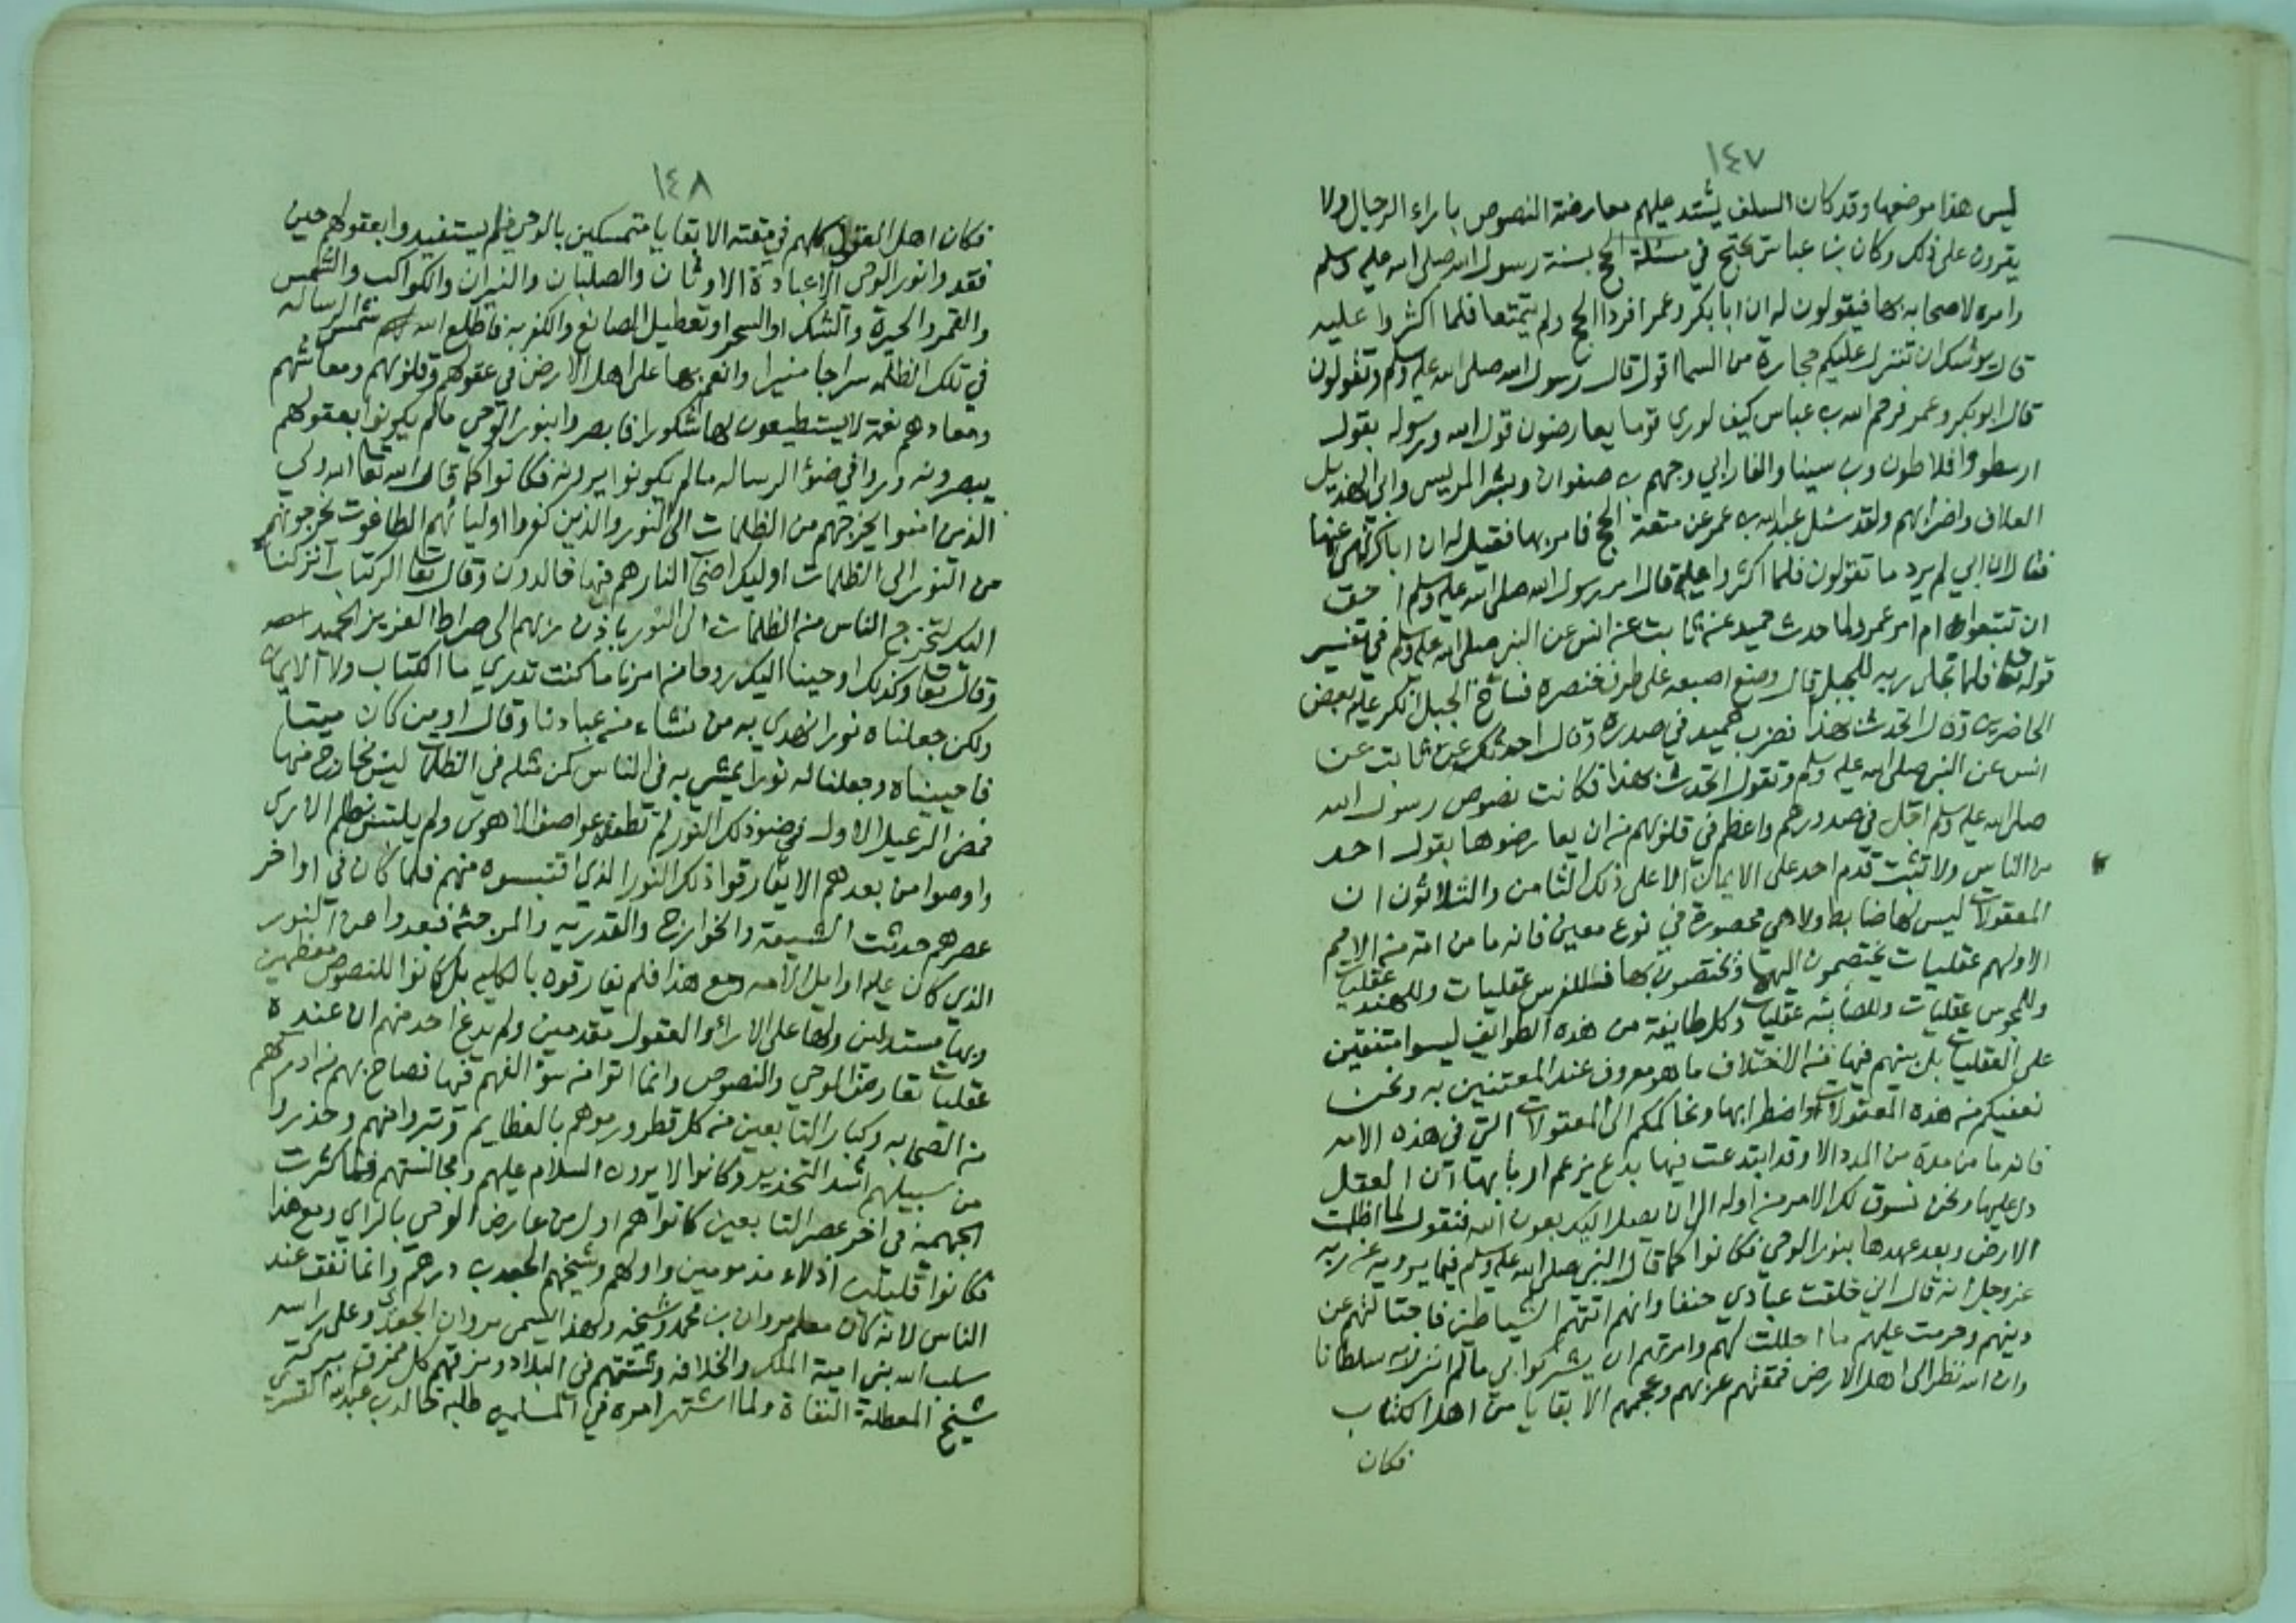 ١٤٧
ليس هذا موضعها وقد كان السلف يشتد عليهم معارضة النصوص باراء الرجال ولا
يقرون على ذلك وكان بن عباس يحتج في مسئلة الحج بسنة رسول الله صلى الله عليه وسلم
وامره لاصحابه بها فيقولون له ان ابا بكر وعمر افردا الحج ولم يتمتعا فلما اكثروا عليه
قال يوشك ان تنزل عليكم حجارة من السما اقول قال رسول الله صلى الله عليه وسلم وتقولون
قال ابو بكر وعمر فرحم الله بن عباس كيف لو راى قوما يعارضون قول الله ورسوله بقول
ارسطو وافلاطون وبن سينا والفارابي وجهم بن صفوان وبشر المريسي وابي الهذيل
العلاف واضرابهم ولقد سئل عبد الله بن عمر عن متعة الحج فامر بها فقيل له ان اباك نهى عنها
فقال ان ابي لم يرد ما تقولون فلما اكثروا عليه قال امر رسول الله صلى الله عليه وسلم احق
ان تتبعوا ام امر عمر ولما حدث حميد عن ثابت عن انس عن النبي صلى الله عليه وسلم في تفسير
قوله تعالى فلما تجلى ربه للجبل قال وضع اصبعه على طرف خنصره فساخ الجبل انكر عليه بعض
الحاضرين وقال اتحدث بهذا فضرب حميد في صدره وقال احدثك عن ثابت عن
انس عن النبي صلى الله عليه وسلم وتقول اتحدث بهذا فكانت نصوص رسول الله
صلى الله عليه وسلم اجل في صدورهم واعظم في قلوبهم من ان يعارضوها بقول احد
من الناس ولا تثبت قدم احد على الايمان الا على ذلك الثامن والثلاثون ان
المعقولات ليس لها ضابط ولا هي محصورة في نوع معين فانه ما من امة من الامم
الا ولهم عقليات يختصمون اليها ويختصون بها فللفرس عقليات وللهند عقليات
وللمجوس عقليات وللصابئه عقليات وكل طايفة من هذه الطوايف ليسوا متفقين
على العقليات بل بينهم فيها من الاختلاف ما هو معروف عند المعتنين به ونحن
نعفيكم من هذه المعقولات واضطرابها ونحاكمكم الى المعقولات التي في هذه الامه
فانه ما من مدة من المدد الا وقد ابتدعت فيها بدع يزعم اربابها ان العقل
دل عليها ونحن نسوق لك الامر من اوله الى ان يصل اليك بعون الله فنقول لما اظلمت
الارض وبعد عهدها بنور الوحي فكانوا كما قال النبي صلى الله عليه وسلم فيما يرويه عن ربه
عز وجل انه قال اني خلقت عبادي حنفا وانهم اتتهم الشياطين فاجتالتهم عن
دينهم وحرمت عليهم ما احللت لهم وامرتهم ان يشركوا بي ما لم انزل به سلطانا
وان الله نظر الى اهل الارض فمقتهم عربهم وعجمهم الا بقايا من اهل الكتاب
فكان
١٤٨
فكان اهل العقول كلهم في مقته الا بقايا متمسكين بالوحي فلم يستفيدوا بعقولهم حين
فقدوا نور الوحي الا عبادة الاوثان والصلبان والنيران والكواكب والشمس
والقمر والحيرة والشك او السحر او تعطيل الصانع والكفر به فاطلع الله شمس الرساله
في تلك الظلمه سراجا منيرا وانعم بها على اهل الارض في عقولهم وقلوبهم ومعاشهم
ومعادهم نعمة لا يستطيعون لها شكورا فابصروا بنور الوحي ما لم يكونوا بعقولهم
يبصرونه وراوا في ضوء الرساله ما لم يكونوا يرونه فكانوا كما قال الله تعالى الله ولي
الذين امنوا يخرجهم من الظلمات الى النور والذين كفروا اوليائهم الطاغوت يخرجونهم
من النور الى الظلمات اوليك اصحاب النار هم فيها خالدون وقال تعالى الر كتاب انزلناه
اليك لتخرج الناس من الظلمات الى النور باذن ربهم الى صراط العزيز الحميد
وقال تعالى وكذلك اوحينا اليك روحا من امرنا ما كنت تدري ما الكتاب ولا الايمان
ولكن جعلناه نورا نهدي به من نشاء من عبادنا وقال اومن كان ميتا
فاحييناه وجعلنا له نورا يمشي به في الناس كمن مثله في الظلمات ليس بخارج منها
فمضى الرعيل الاول في ضوء ذلك النور لم تطفئه عواصف الاهوى ولم يلتبس بظلم الاراى
واوصوا من بعدهم الا يفارقوا ذلك النور الذي اقتبسوه منهم فلما كان في اواخر
عصرهم حدثت الشيعة والخوارج والقدريه والمرجئة فبعدوا عن النور
الذي كان عليه اوايل الامه ومع هذا فلم يفارقوه بالكليه بل كانوا للنصوص معظمين
وبها مستدلين ولها على الاراء والعقول مقدمين ولم يدع احد منهم ان عنده
عقليات تعارض الوحي والنصوص وانما اتوا من سوء الفهم فيها فصاح بهم من ادركهم
من الصحابه وكبار التابعين من كل قطر ورموهم بالعظايم وتبروا منهم وحذروا
من سبيلهم اشد التحذير وكانوا لا يرون السلام عليهم ومجالستهم فلما كثرت
الجهمية في اخر عصر التابعين كانوا هم اول من عارض الوحي بالراي ومع هذا
فكانوا قليلين اذلاء مذمومين واولهم وشيخهم الجعد بن درهم وانما نفق عند
الناس لانه كان معلم مروان بن محمد وشيخه ولهذا يسمى مروان الجعدي وعلى راسه
سلب الله بني امية الملك والخلافه وشتتهم في البلاد ومزقهم كل ممزق ببركة
شيخ المعطلة النفاة ولما اشتهر امره في المسلمين طلبه خالد بن عبد الله القسري